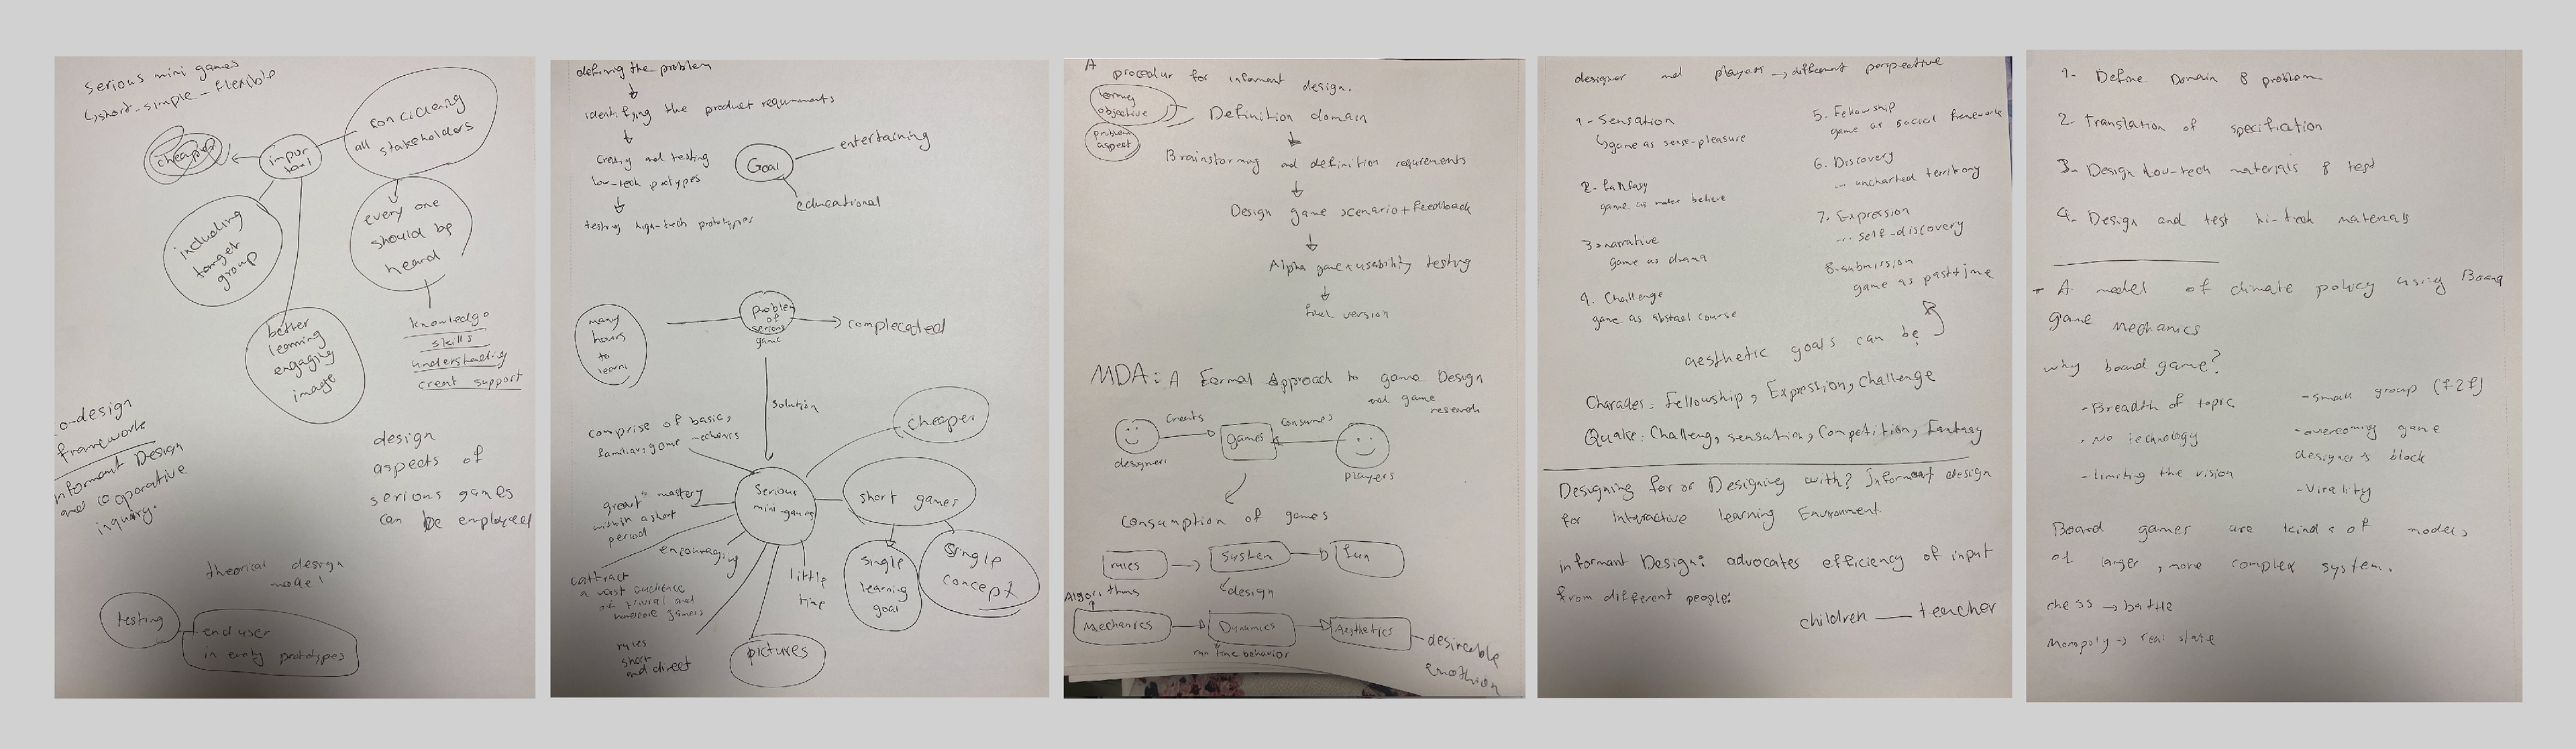 serious mini games
↳short-simple-flexible
considering
all stakeholders
cheaper
impor
tant
including
target
group
every one
should be
heard
better
learning
engaging
image
knowledge
skills
understanding
creat support
o-design
framework
nformant Design
and cooparative
inquiry.
design
aspects of
serious games
can be employed
theorical design
model
testing
end user
in early prototypes
defining the problem
identifying the product requirments
Creating and testing
low-tech prototypes
testing high-tech prototypes
Goal
entertaining
educational
many
hours
to
learn
problem
of
serious
game
complecated
solution
comprise of basic,
familiar, game mechanics
cheaper
great mastery
within a short
period
Serious
mini-games
short games
encouraging
attract
a vast audience
of trivial and
hardcore gamers
little
time
single
learning
goal
single
concept
rules
short
and direct
pictures
A procedur for informant design.
learning
objective
problem
aspect
Definition domain
Brainstorming and definition requrements
Design game scenario + Feedback
Alpha game + usability testing
final version
MDA: A Formal Approach to game Design
and game
research
Creats
Consumes
designer
games
players
Consumption of games
rules
System
fun
design
Algorithms
Mechanics
Dynamics
Aesthetics
run time behavior
desireable
emothion
designer and players → different perspective
1- Sensation
↳game as sense-pleasure
2- fantasy
game as make believe
3- narrative
game as drama
4. Challenge
game as abstacl course
5. Fellowship
game as social framework
6. Discovery
... uncharted territory
7. Expression
... self-discovery
8. submission
game as pasttime
aesthetic goals can be:
Charades: Fellowship, Expression, Challenge
Quake: Challeng, sensation, Competition, Fantasy
Designing for or Designing with? Informant design
for Interactive learning Environment
informant Design: advocates efficiency of input
from different people:
children — teacher
1- Define Domain & problem
2. Translation of specification
3- Design low-tech materials & test
4- Design and test hi-tech materials
A model of climate policy using Board
game mechanics
why board game?
- Breadth of topic
- No technology
- limiting the vision
- small group (F2F)
- overcoming game
designer's block
- Virality
Board games are kinds of models
of larger, more complex system.
chess → battle
Monopoly → real state